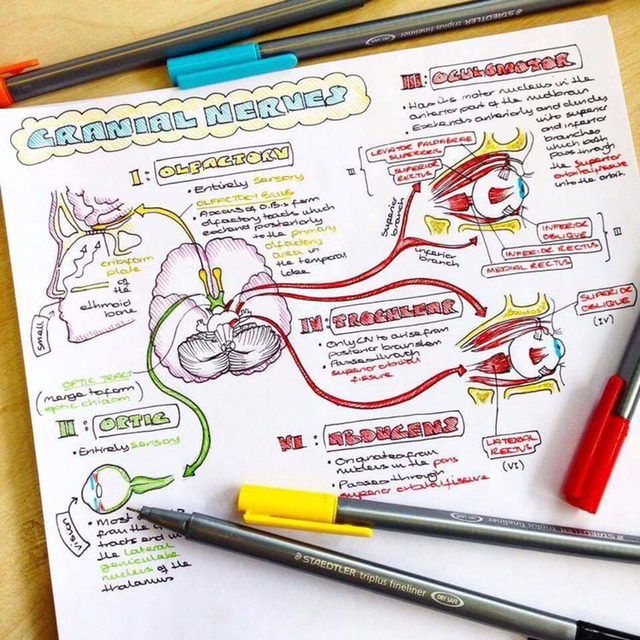 CRANIAL NERVES
I: OLFACTORY
• Entirely sensory
OLFACTORY BULBS
• Axons of O.B.s form
olfactory tracts which
extend posteriorly
to the primary
olfactory
area in
the temporal
lobe
cribriform
plate
of the
ethmoid
bone
Smell
OPTIC TRACT
(merge to form)
optic chiasm
II: OPTIC
• Entirely sensory
Vision
• Most
from the
tracts and
the lateral
geniculate
nucleus of the
thalamus
III: OCULOMOTOR
• Has its motor nucleus in the
anterior part of the midbrain
• Extends anteriorly and divides
into superior
and inferior
branches
which both
pass through
the superior
orbital fissure
into the orbit
LEVATOR PALPABRAE
SUPERIORIS
SUPERIOR
RECTUS
III
Superior
branch
inferior
branch
INFERIOR
OBLIQUE
INFERIOR RECTUS
MEDIAL RECTUS
III
IV: TROCHLEAR
• Only CN to arise from
posterior brainstem
• Passes through
superior orbital
fissure
SUPERIOR
OBLIQUE
(IV)
VI: ABDUCENS
• Originates from
nucleus in the pons
• Passes through
superior orbital fissure
LATERAL
RECTUS
(VI)
STAEDTLER triplus fineliner
STAEDTLER triplus fineliner
STAEDTLER triplus fineliner DRY SAFE